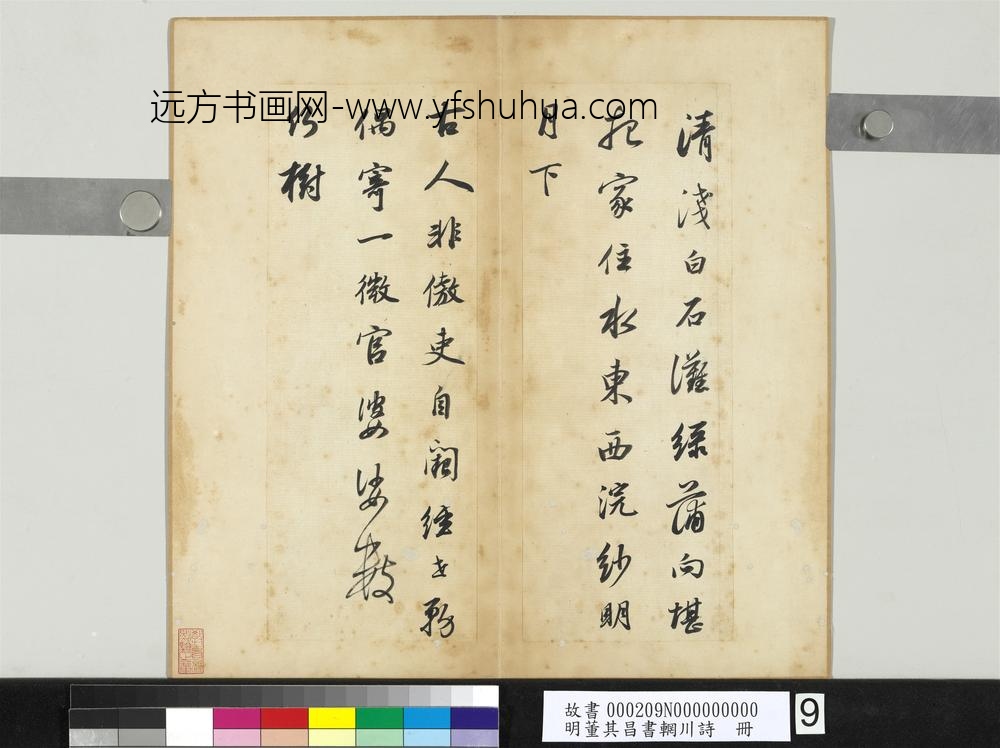 远方书画网-www.yfshuhua.com
清淺白石灘綠蒲向堪
把家住水東西浣紗明
月下
古人非傲吏自闕經世務
偶寄一微官婆娑數
株樹
故書 000209N000000000
明董其昌書輞川詩 冊
9